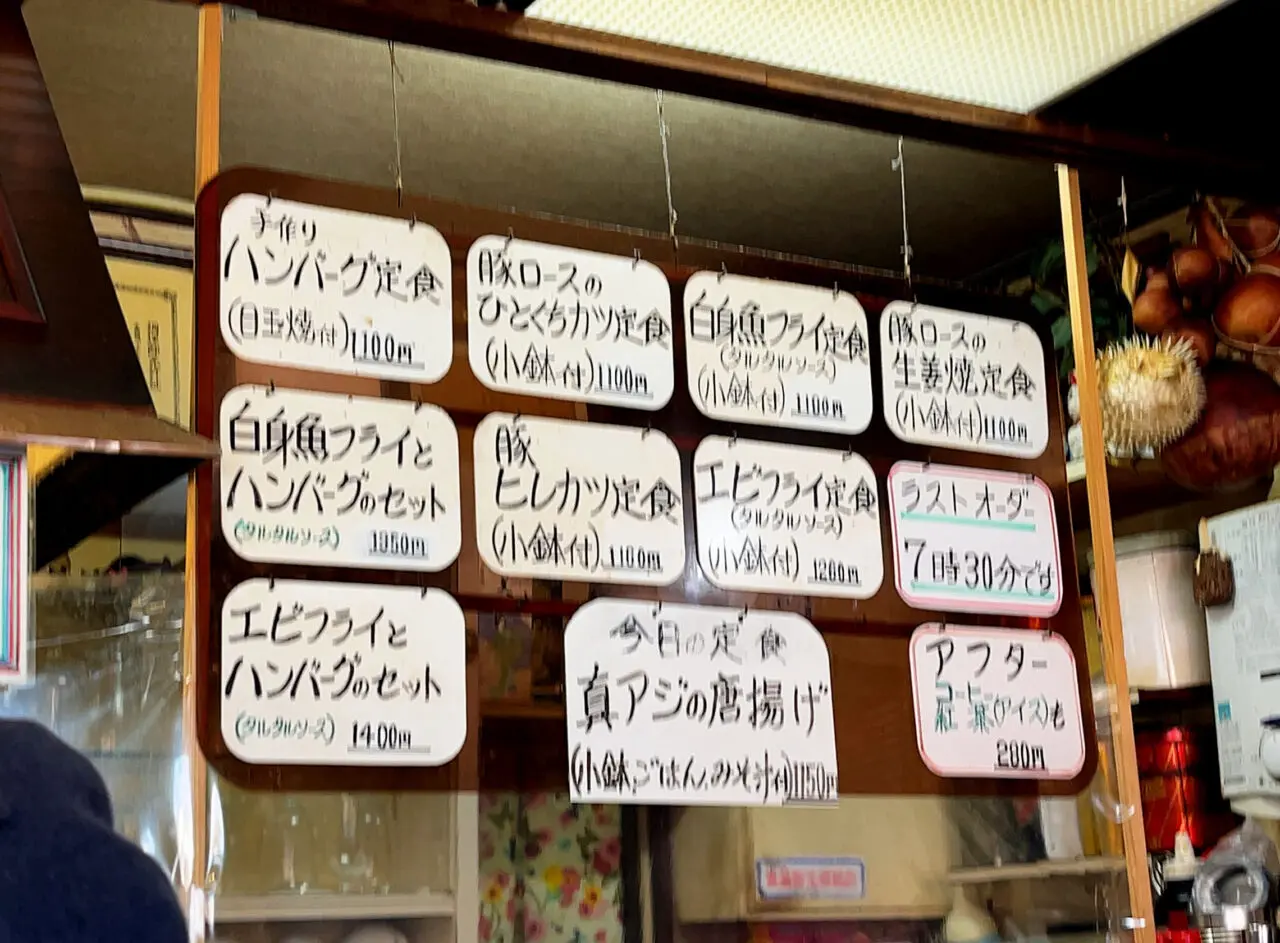 手作り
ハンバーグ定食
(目玉焼付)1100円
豚ロースの
ひとくちカツ定食
(小鉢付)1100円
白身魚フライ定食
(タルタルソース)
(小鉢付)1100円
豚ロースの
生姜焼定食
(小鉢付)1100円
白身魚フライと
ハンバーグのセット
(タルタルソース) 1350円
豚
ヒレカツ定食
(小鉢付)1100円
エビフライ定食
(タルタルソース)
(小鉢付) 1200円
ラストオーダー
7時30分です
エビフライと
ハンバーグのセット
(タルタルソース) 1400円
今日の定食
真アジの唐揚げ
(小鉢、ごはん、みそ汁付)1150円
アフター
コーヒー
紅茶(アイス)も
200円